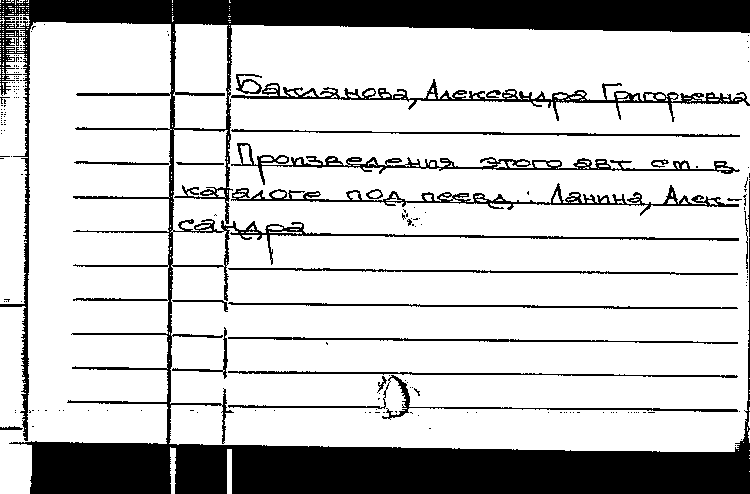 Бакланова, Александра Григорьевна
Произведения этого авт. см. в
каталоге под псевд.: Ланина, Алек-
сандра